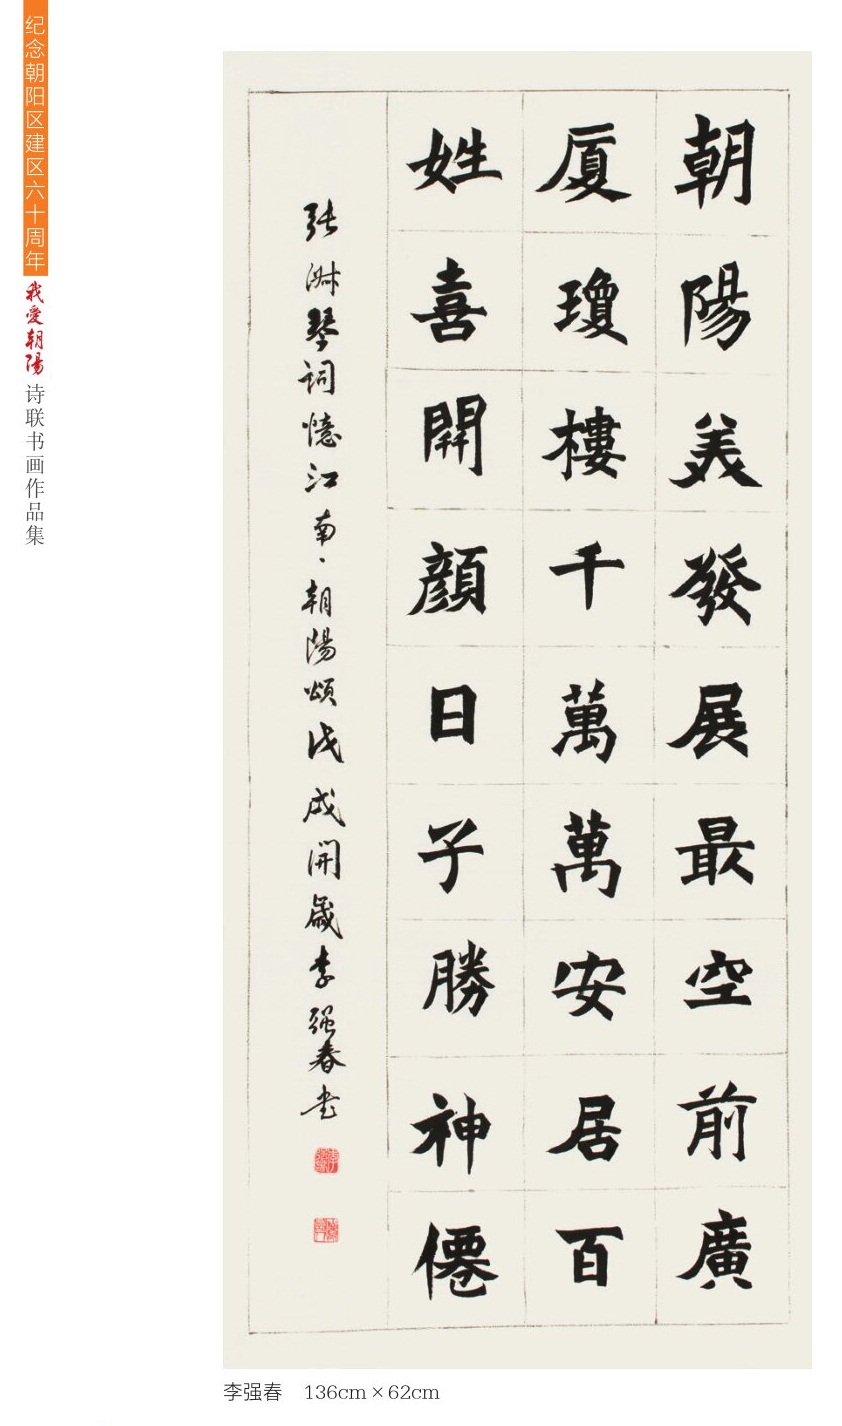 纪念朝阳区建区六十周年
我爱朝陽
诗联书画作品集
朝陽美發展最空前廣
廈瓊樓千萬萬安居百
姓喜開顔日子勝神僊
张淋琴词憶江南、朝陽頌戊戌開歲李强春书
李强春 136cm×62cm